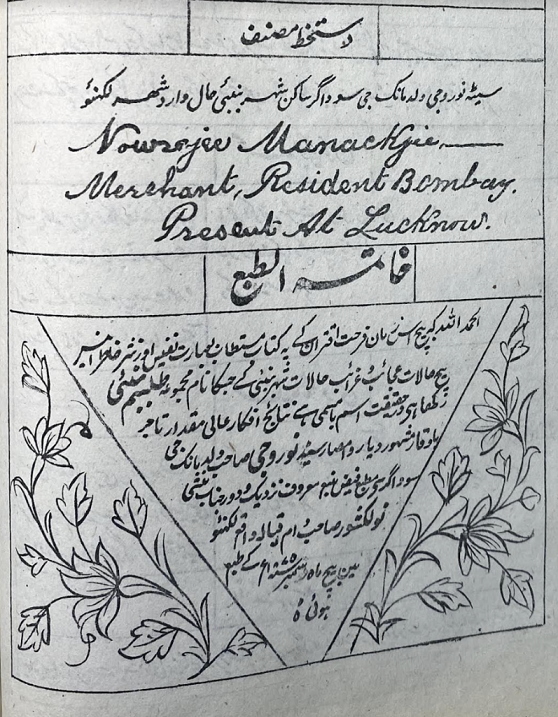 دستخط مصنف
سیٹھ نوروجی ولد مانک جی سوداگر ساکن شہر بنبئی حال وارد شہر لکھنئو
Nowrojee Manackjee
Merchant, Resident Bombay.
Present At Lucknow.
خاتمۃ الطبع
الحمد اللہ کہ بیچ اس زمان فرحت اقتران کے یہ کتاب مستطاب بعبارت نفیس اور نثر
بیچ حالات عجائب و غرائب حالات شہر بنبئی کے جسکا نام مجموعہ طلسم بنبئی
رکھا ہی درحقیقت اسم بامسمی ہے نتائج افکار عالی مقدار تاجر
باوقار مشہور دیار و امصار سیٹھ نوروجی صاحب ولد مانک جی
سوداگر معروف نزدیک و دور جناب منشی
نولکشور صاحب دام اقبالہ واقع لکھنئو
مین بیچ ماہ دسمبر کے طبع
ہوئی